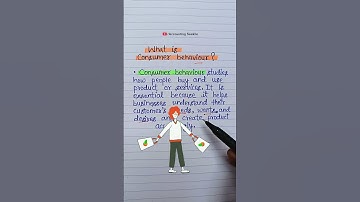 Accounting Seekho
What is
Consumer behaviour?
• Consumer behaviour studies
how people buy and use
product or services. It is
essential because it helps
businesses understand their
customer's needs, wants and
desires and create product